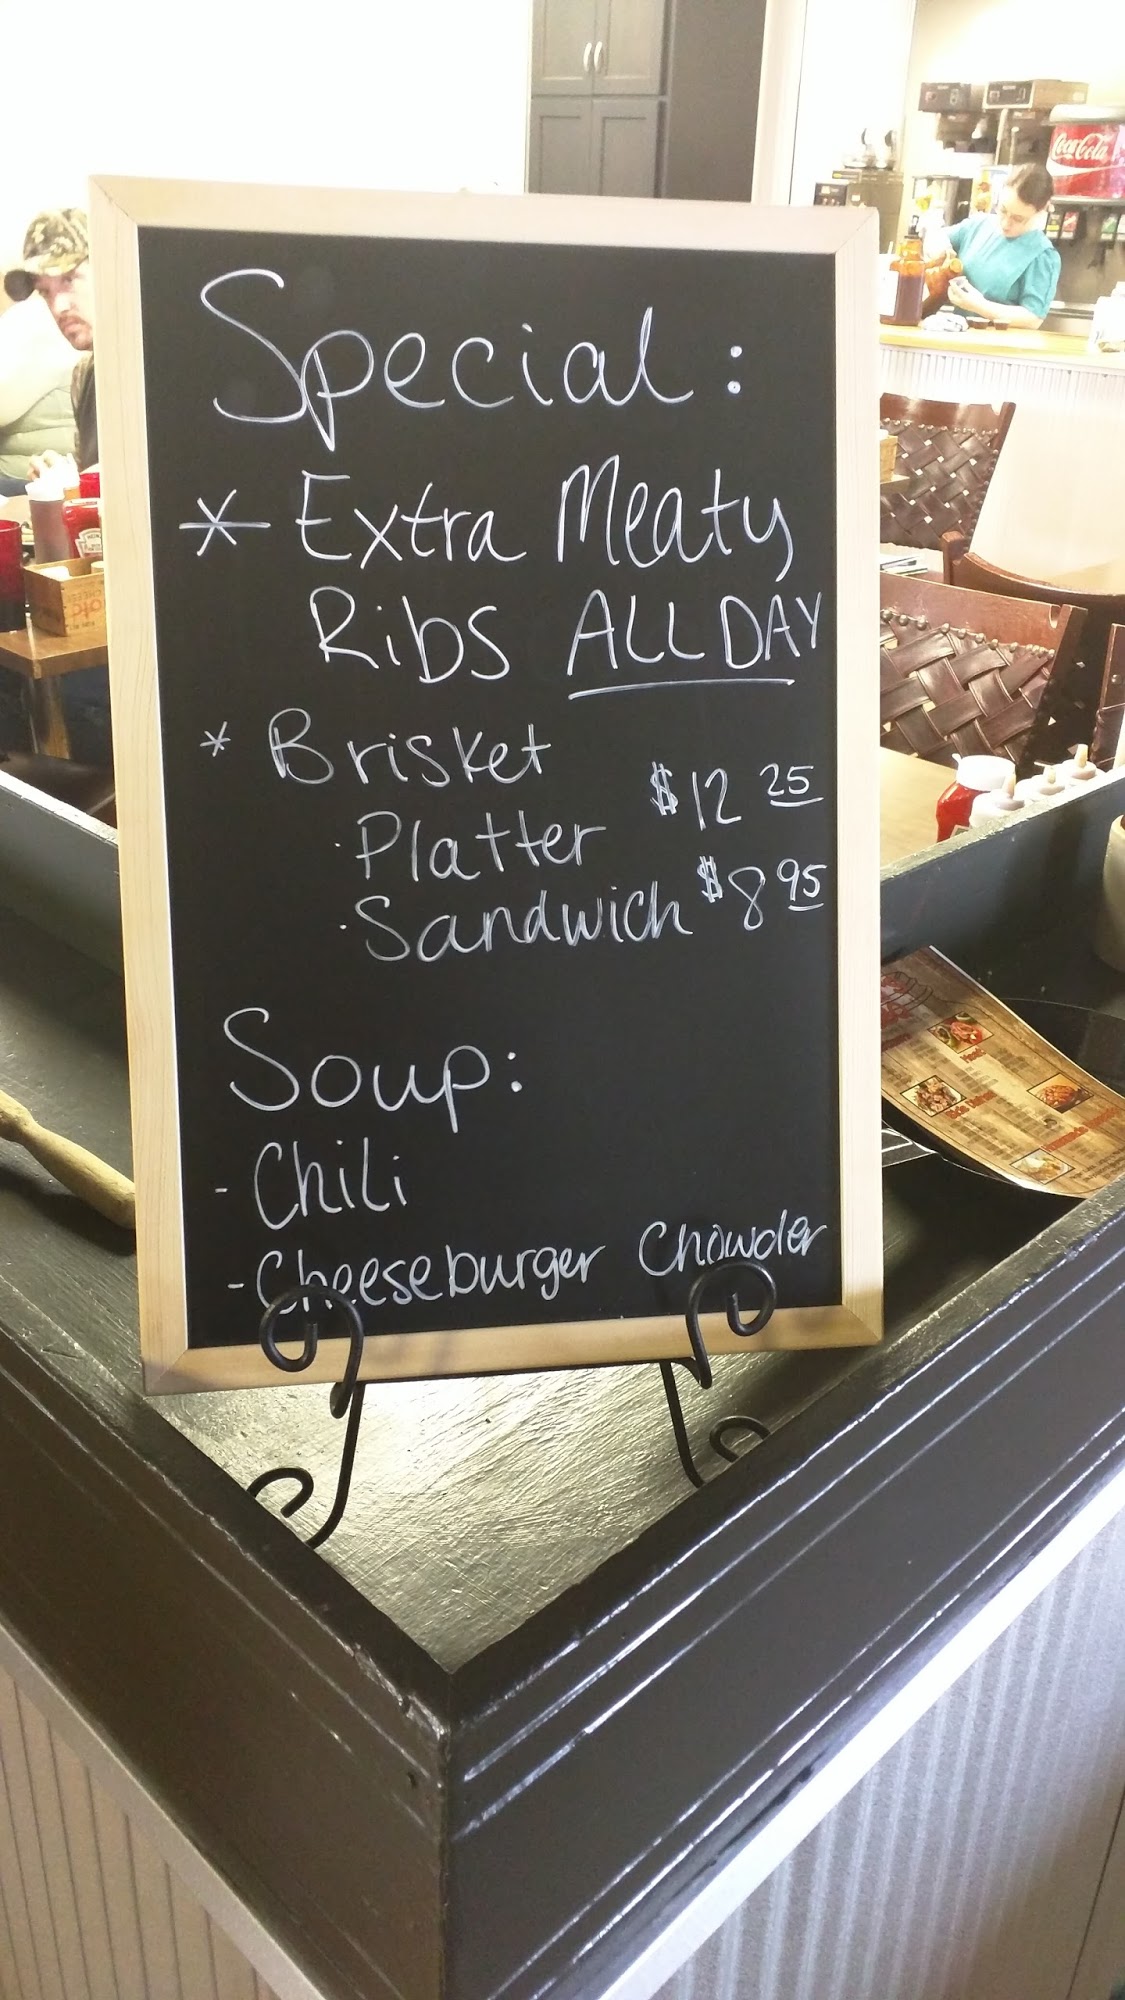 Special:
* Extra Meaty
Ribs ALL DAY
* Brisket
· Platter $12 25
· Sandwich $8 95
Soup:
- Chili
- Cheeseburger Chowder
Coca-Cola
HEINZ